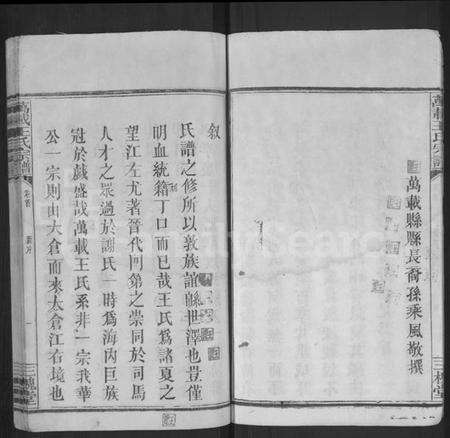 萬載王氏宗譜
三槐堂
萬載縣縣長裔孫乘風敬撰
敘
氏譜之修所以敦族誼綿世澤也豈僅
明血統籍丁口而已哉王氏爲諸夏之
望江左尤著晉代門第之崇同於司馬
人才之眾過於謝氏一時爲海內巨族
冠於戲盛哉萬載王氏系非一宗我華
公一宗則由太倉而來太倉江右境也
萬載王氏宗譜
卷首
一
三槐堂